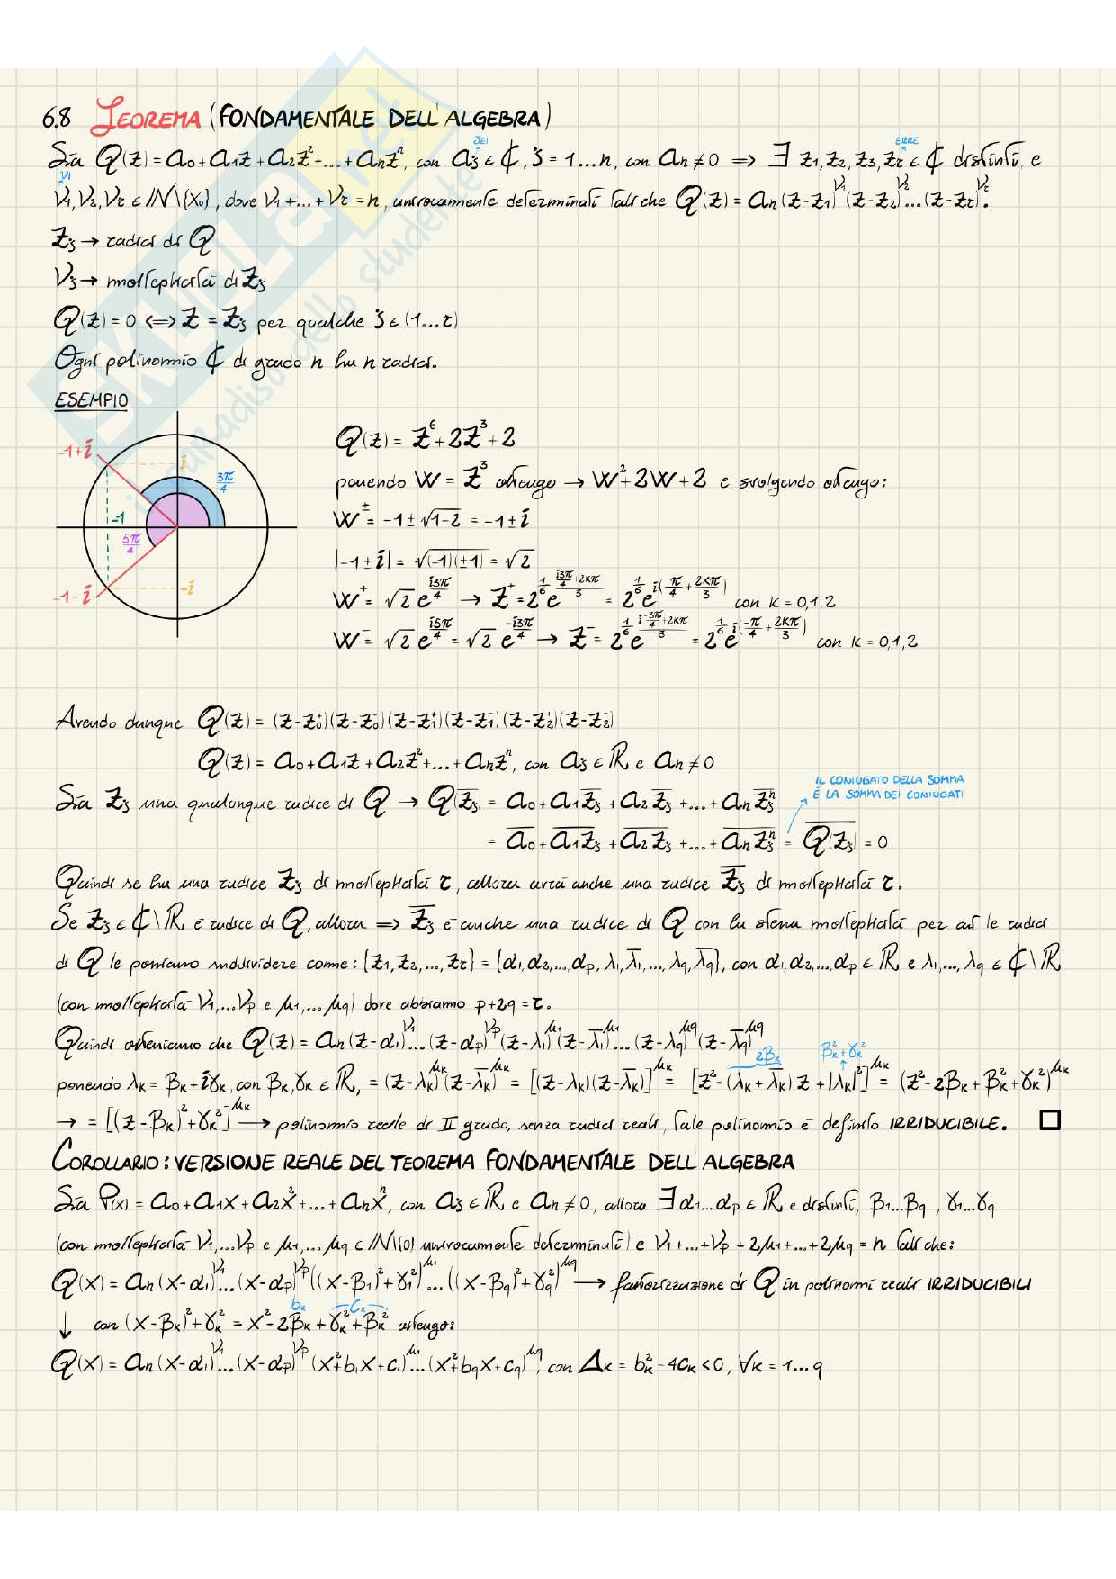 6.8 TEOREMA (FONDAMENTALE DELL'ALGEBRA)
JEI ERRE
Sia Q(z) = a₀+a₁z+a₂z²-...+aₙzⁿ, con aⱼ ∈ ℂ, j = 1...n, con aₙ≠0 ⟹ ∃ z₁,z₂,z₃,zᵣ ∈ ℂ distinti, e
VI
ν₁,ν₂,νᵣ ∈ ℕ\{x₀}, dove ν₁+...+νᵣ = n, univocamente determinati tali che Q(z) = aₙ(z-z₁)^ν₁ (z-z₂)^ν₂...(z-zᵣ)^νᵣ.
zⱼ → radici di Q
νⱼ → molteplicità di zⱼ
Q(z) = 0 ⟺ z = zⱼ per qualche j ∈ (1...r)
Ogni polinomio ℂ di grado n ha n radici.
ESEMPIO
-1+i
i
3π/4
-1
5π/4
-1-i
-i
Q(z) = z⁶+2z³+2
ponendo w = z³ ottengo → w²+2w+2 e svolgendo ottengo:
w^± = -1±√(1-2) = -1±i
|-1±i| = √((-1)(±1)) = √2
w⁺ = √2 e^(i3π/4) → z⁺ = 2^(1/6) e^((i3π/4+2kπ)/3) = 2^(1/6) e^(i(π/4+2kπ/3)) con k = 0,1,2
w⁻ = √2 e^(i5π/4) = √2 e^(-i3π/4) → z⁻ = 2^(1/6) e^((i-3π/4+2kπ)/3) = 2^(1/6) e^(i(-π/4+2kπ/3)) con k = 0,1,2
Avendo dunque Q(z) = (z-z₀⁺)(z-z₀⁻)(z-z₁⁺)(z-z₁⁻)(z-z₂⁺)(z-z₂⁻)
Q(z) = a₀+a₁z+a₂z²+...+aₙzⁿ, con aⱼ ∈ ℝ e aₙ≠0
IL CONIUGATO DELLA SOMMA
È LA SOMMA DEI CONIUGATI
Sia zⱼ una qualunque radice di Q → Q(z̅ⱼ) = a₀+a₁z̅ⱼ+a₂z̅ⱼ+...+aₙz̅ⱼⁿ
= a̅₀+a̅₁z̅ⱼ+a̅₂z̅ⱼ+...+a̅ₙz̅ⱼⁿ = \overline{Q(zⱼ)} = 0
Quindi se ha una radice zⱼ di molteplicità r, allora avrà anche una radice z̅ⱼ di molteplicità r.
Se zⱼ ∈ ℂ\ℝ è radice di Q, allora ⟹ z̅ⱼ è anche una radice di Q con la stessa molteplicità per cui le radici
di Q le possiamo suddividere come: {z₁,z₂,...,zᵣ} = {α₁,α₂,...,αₚ,λ₁,λ̅₁,...,λ_q,λ̅_q}, con α₁,α₂,...,αₚ ∈ ℝ e λ₁,...,λ_q ∈ ℂ\ℝ
(con molteplicità ν₁,...νₚ e μ₁,...μ_q) dove abbiamo p+2q = r.
Quindi otteniamo che Q(z) = aₙ(z-α₁)^ν₁...(z-αₚ)^νₚ(z-λ₁)^μ₁(z-λ̅₁)^μ₁...(z-λ_q)^μ_q(z-λ̅_q)^μ_q
2βₖ βₖ²+γₖ²
ponendo λₖ = βₖ-iγₖ, con βₖ,γₖ ∈ ℝ, = (z-λₖ)^μₖ(z-λ̅ₖ)^μₖ = [(z-λₖ)(z-λ̅ₖ)]^μₖ = [z²-(λₖ+λ̅ₖ)z+|λₖ|²]^μₖ = (z²-2βₖ+βₖ²+γₖ²)^μₖ
→ = [(z-βₖ)²+γₖ²]^μₖ ⟶ polinomio reale di II grado, senza radici reali, tale polinomio è definito IRRIDUCIBILE. □
COROLLARIO: VERSIONE REALE DEL TEOREMA FONDAMENTALE DELL ALGEBRA
Sia P(x) = a₀+a₁x+a₂x²+...+aₙxⁿ, con aⱼ ∈ ℝ e aₙ≠0, allora ∃ α₁...αₚ ∈ ℝ e distinti, β₁...β_q, γ₁...γ_q
(con molteplicità ν₁,...νₚ e μ₁,...μ_q ∈ ℕ\{0} univocamente determinati) e ν₁+...+νₚ+2μ₁+...+2μ_q = n tali che:
Q(x) = aₙ(x-α₁)^ν₁...(x-αₚ)^νₚ((x-β₁)²+γ₁²)^μ₁...((x-β_q)²+γ_q²)^μ_q ⟶ fattorizzazione di Q in polinomi reali IRRIDUCIBILI
bₖ cₖ
↓ con (x-βₖ)²+γₖ² = x²-2βₖ+γₖ²+βₖ² ottengo:
Q(x) = aₙ(x-α₁)^ν₁...(x-αₚ)^νₚ(x²+b₁x+c₁)^μ₁...(x²+b_qx+c_q)^μ_q, con Δₖ = bₖ²-4cₖ<0, ∀k = 1...q